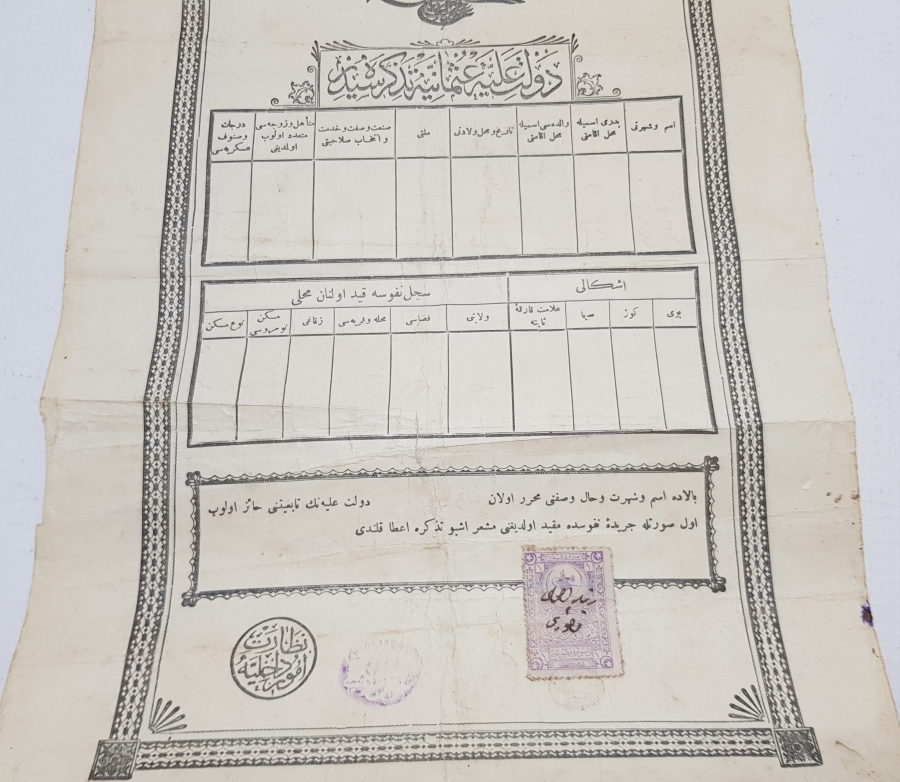 دولت علیه عثمانیه تذکره سیدر
اسم وشهرتی
پدری اسمیله محل اقامتی
والده سی اسمیله محل اقامتی
تاریخ ومحل ولادتی
ملتی
صنعت وصفت وخدمت وانتخاب صلاحیتی
متأهل وزوجه سی متعدد اولوب اولمدیغی
درجات وصنوف عسکریه سی
اشکالی
سجل نفوسه قید اولنان محلی
بوی
کوز
سیما
علامت فارقهٔ ثابته
ولایتی
قضاسی
محله وقریه سی
زقاغی
مسکن نومروسی
نوع مسکن
بالاده اسم وشهرت وحال وصفتی محرر اولان دولت علیه نك تابعیتنی حائز اولوب
اول صورتله جریدهٔ نفوسده مقید اولدیغنی مشعر اشبو تذکره اعطا قلندی
نظارت امور داخلیه